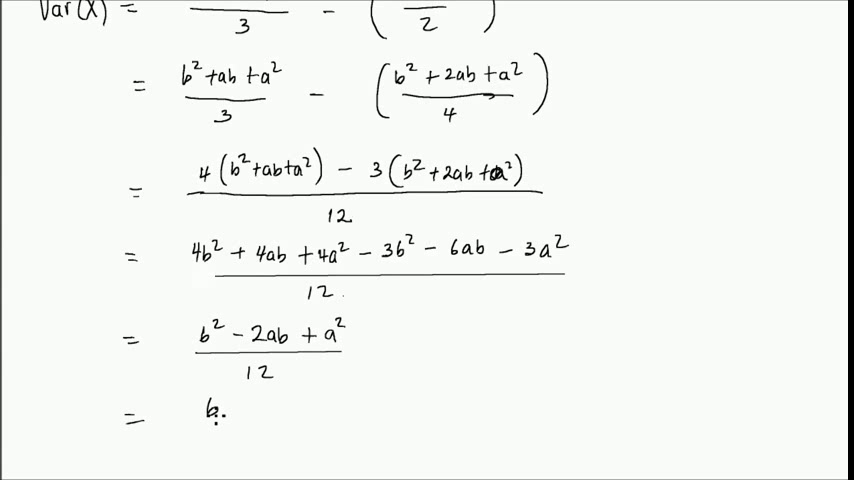 Var(X) = /3 - ( /2 )
= (b² + ab + a²)/3 - ((b² + 2ab + a²)/4)
= (4(b² + ab + a²) - 3(b² + 2ab + a²))/12
= (4b² + 4ab + 4a² - 3b² - 6ab - 3a²)/12
= (b² - 2ab + a²)/12
= b